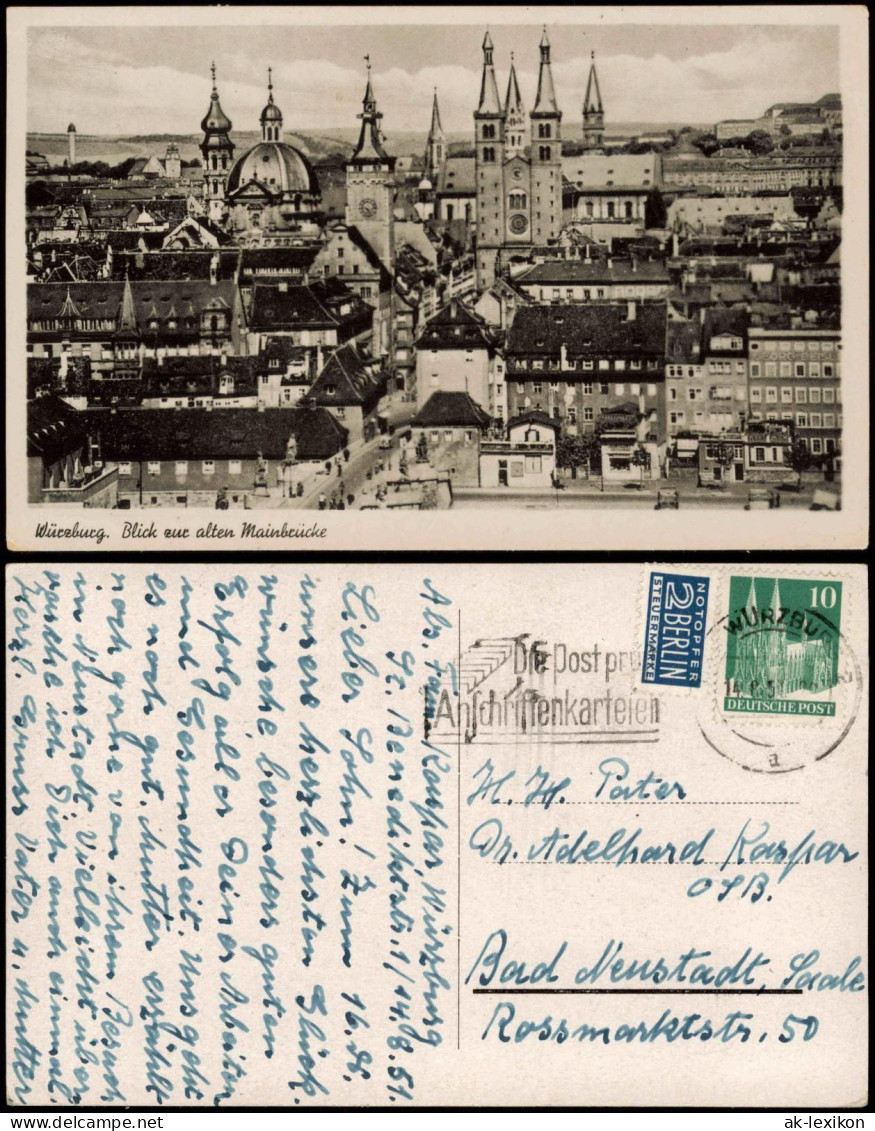 Würzburg. Blick zur alten Mainbrücke
Abs. Fam. Kaspar Würzburg
St. Benediktstr. 1/14.8.51.
Lieber Sohn! Zum 16. ds.
unsere herzlichsten Glück-
wünsche besonders guten
Erfolg aller Deiner Arbeiten
und Gesundheit. Uns geht
es noch gut. Mutter erzählt
noch gerne von ihrem Besuch
in Neustadt. Vielleicht über-
rasche ich Dich auch einmal.
Herzl. Gruss Vater u. Mutter
Die Post prü
Anschriftenkarteien
NOTOPFER
2 BERLIN
STEUERMARKE
10
DEUTSCHE POST
WÜRZBU
14.8.51
a
H. H. Pater
Dr. Adelhard Kaspar
OSB.
Bad Neustadt, Saale
Rossmarktstr. 50
ak-lexikon